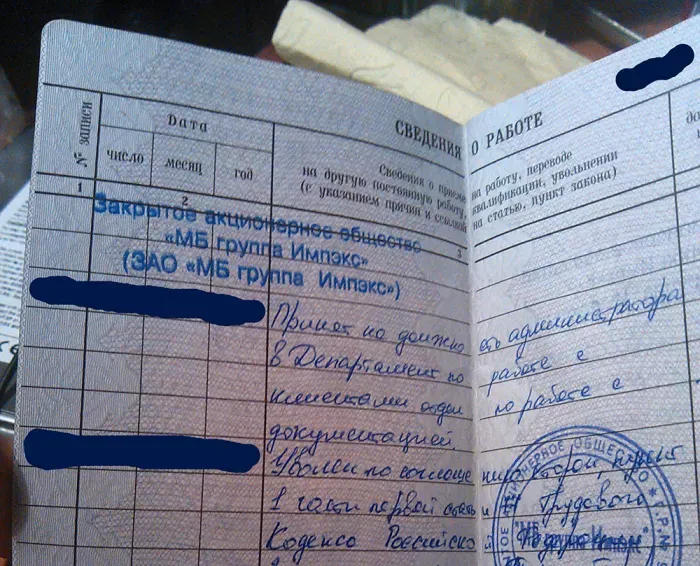 СВЕДЕНИЯ О РАБОТЕ
№ записи
Дата
число месяц год
Сведения о приеме на работу, переводе
на другую постоянную работу, квалификации, увольнении
(с указанием причин и ссылкой на статью, пункт закона)
1 2 3
Закрытое акционерное общество
«МБ группа Импэкс»
(ЗАО «МБ группа Импэкс»)
Принят на должность администратора
в Департамент по работе с
клиентами отдел по работе с
документацией.
Уволен по соглашению сторон, пункт
1 части первой статьи 77 Трудового
Кодекса Российской Федерации